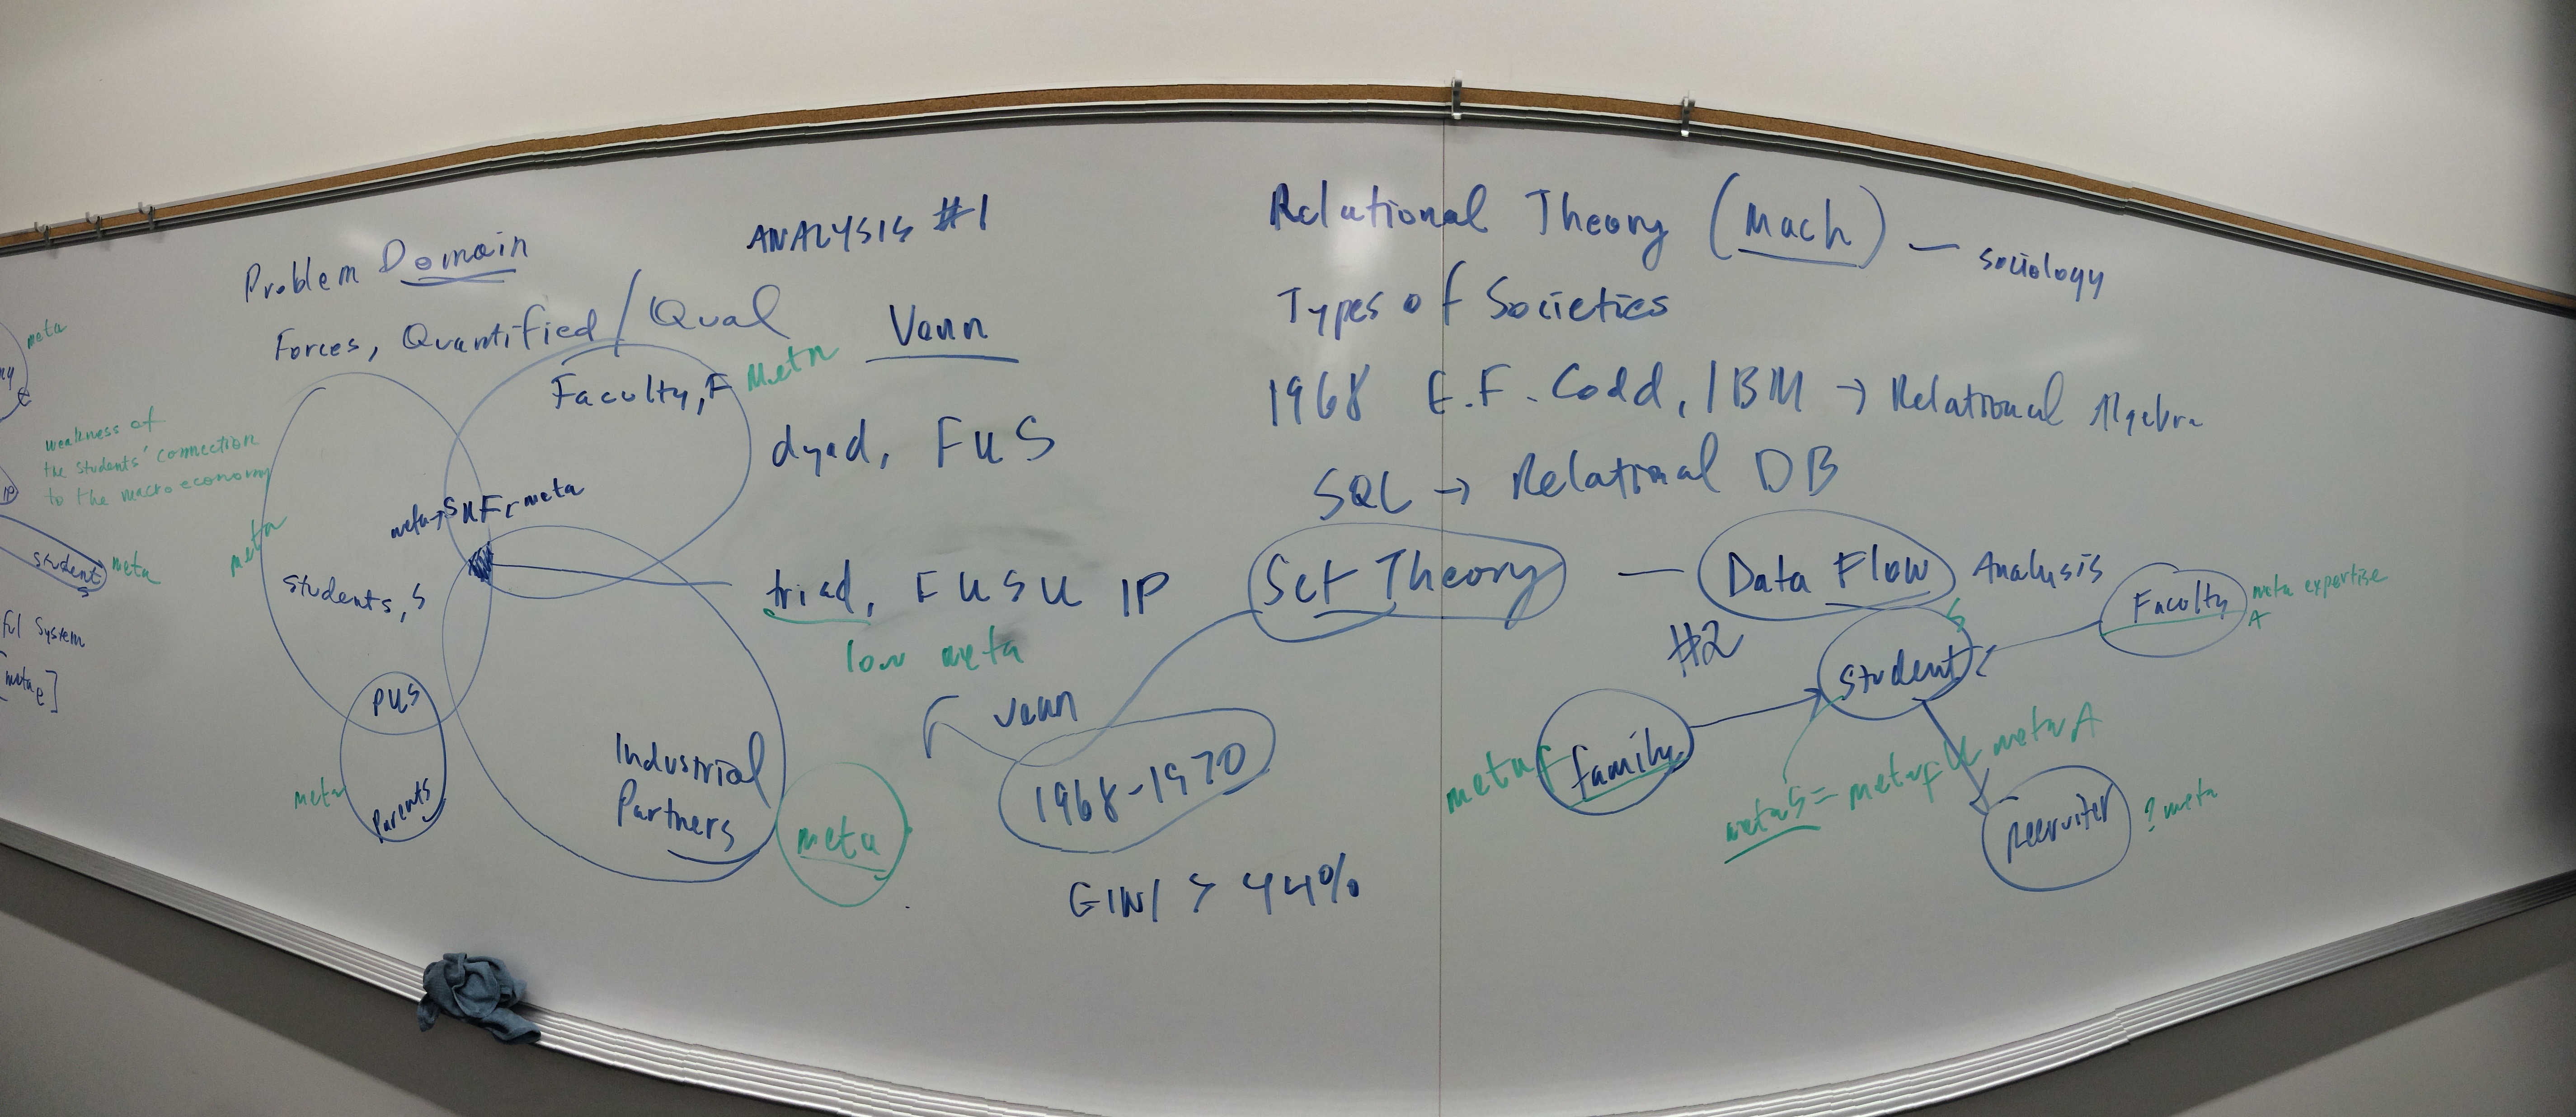 meta
weakness of
the students' connection
to the macroeconomy
student
meta
ful System
Problem Domain
Forces, Quantified / Qual
ANALYSIS #1
Venn
Faculty, F
Meta
dyad, FUS
meta→SUF←meta
meta
students, S
triad, FUSU IP
low meta
PUS
Parents
meta
Industrial
Partners
meta
Relational Theory (Mach) — sociology
Types of Societies
1968 E.F. Codd, IBM → Relational Algebra
SQL → Relational DB
Set Theory — Data Flow Analysis
#2
Venn
1968-1970
GINI > 44%
Faculty
meta expertise
A
S
student
family
meta f
metaS = metaf U metaA
Recruiter
? meta